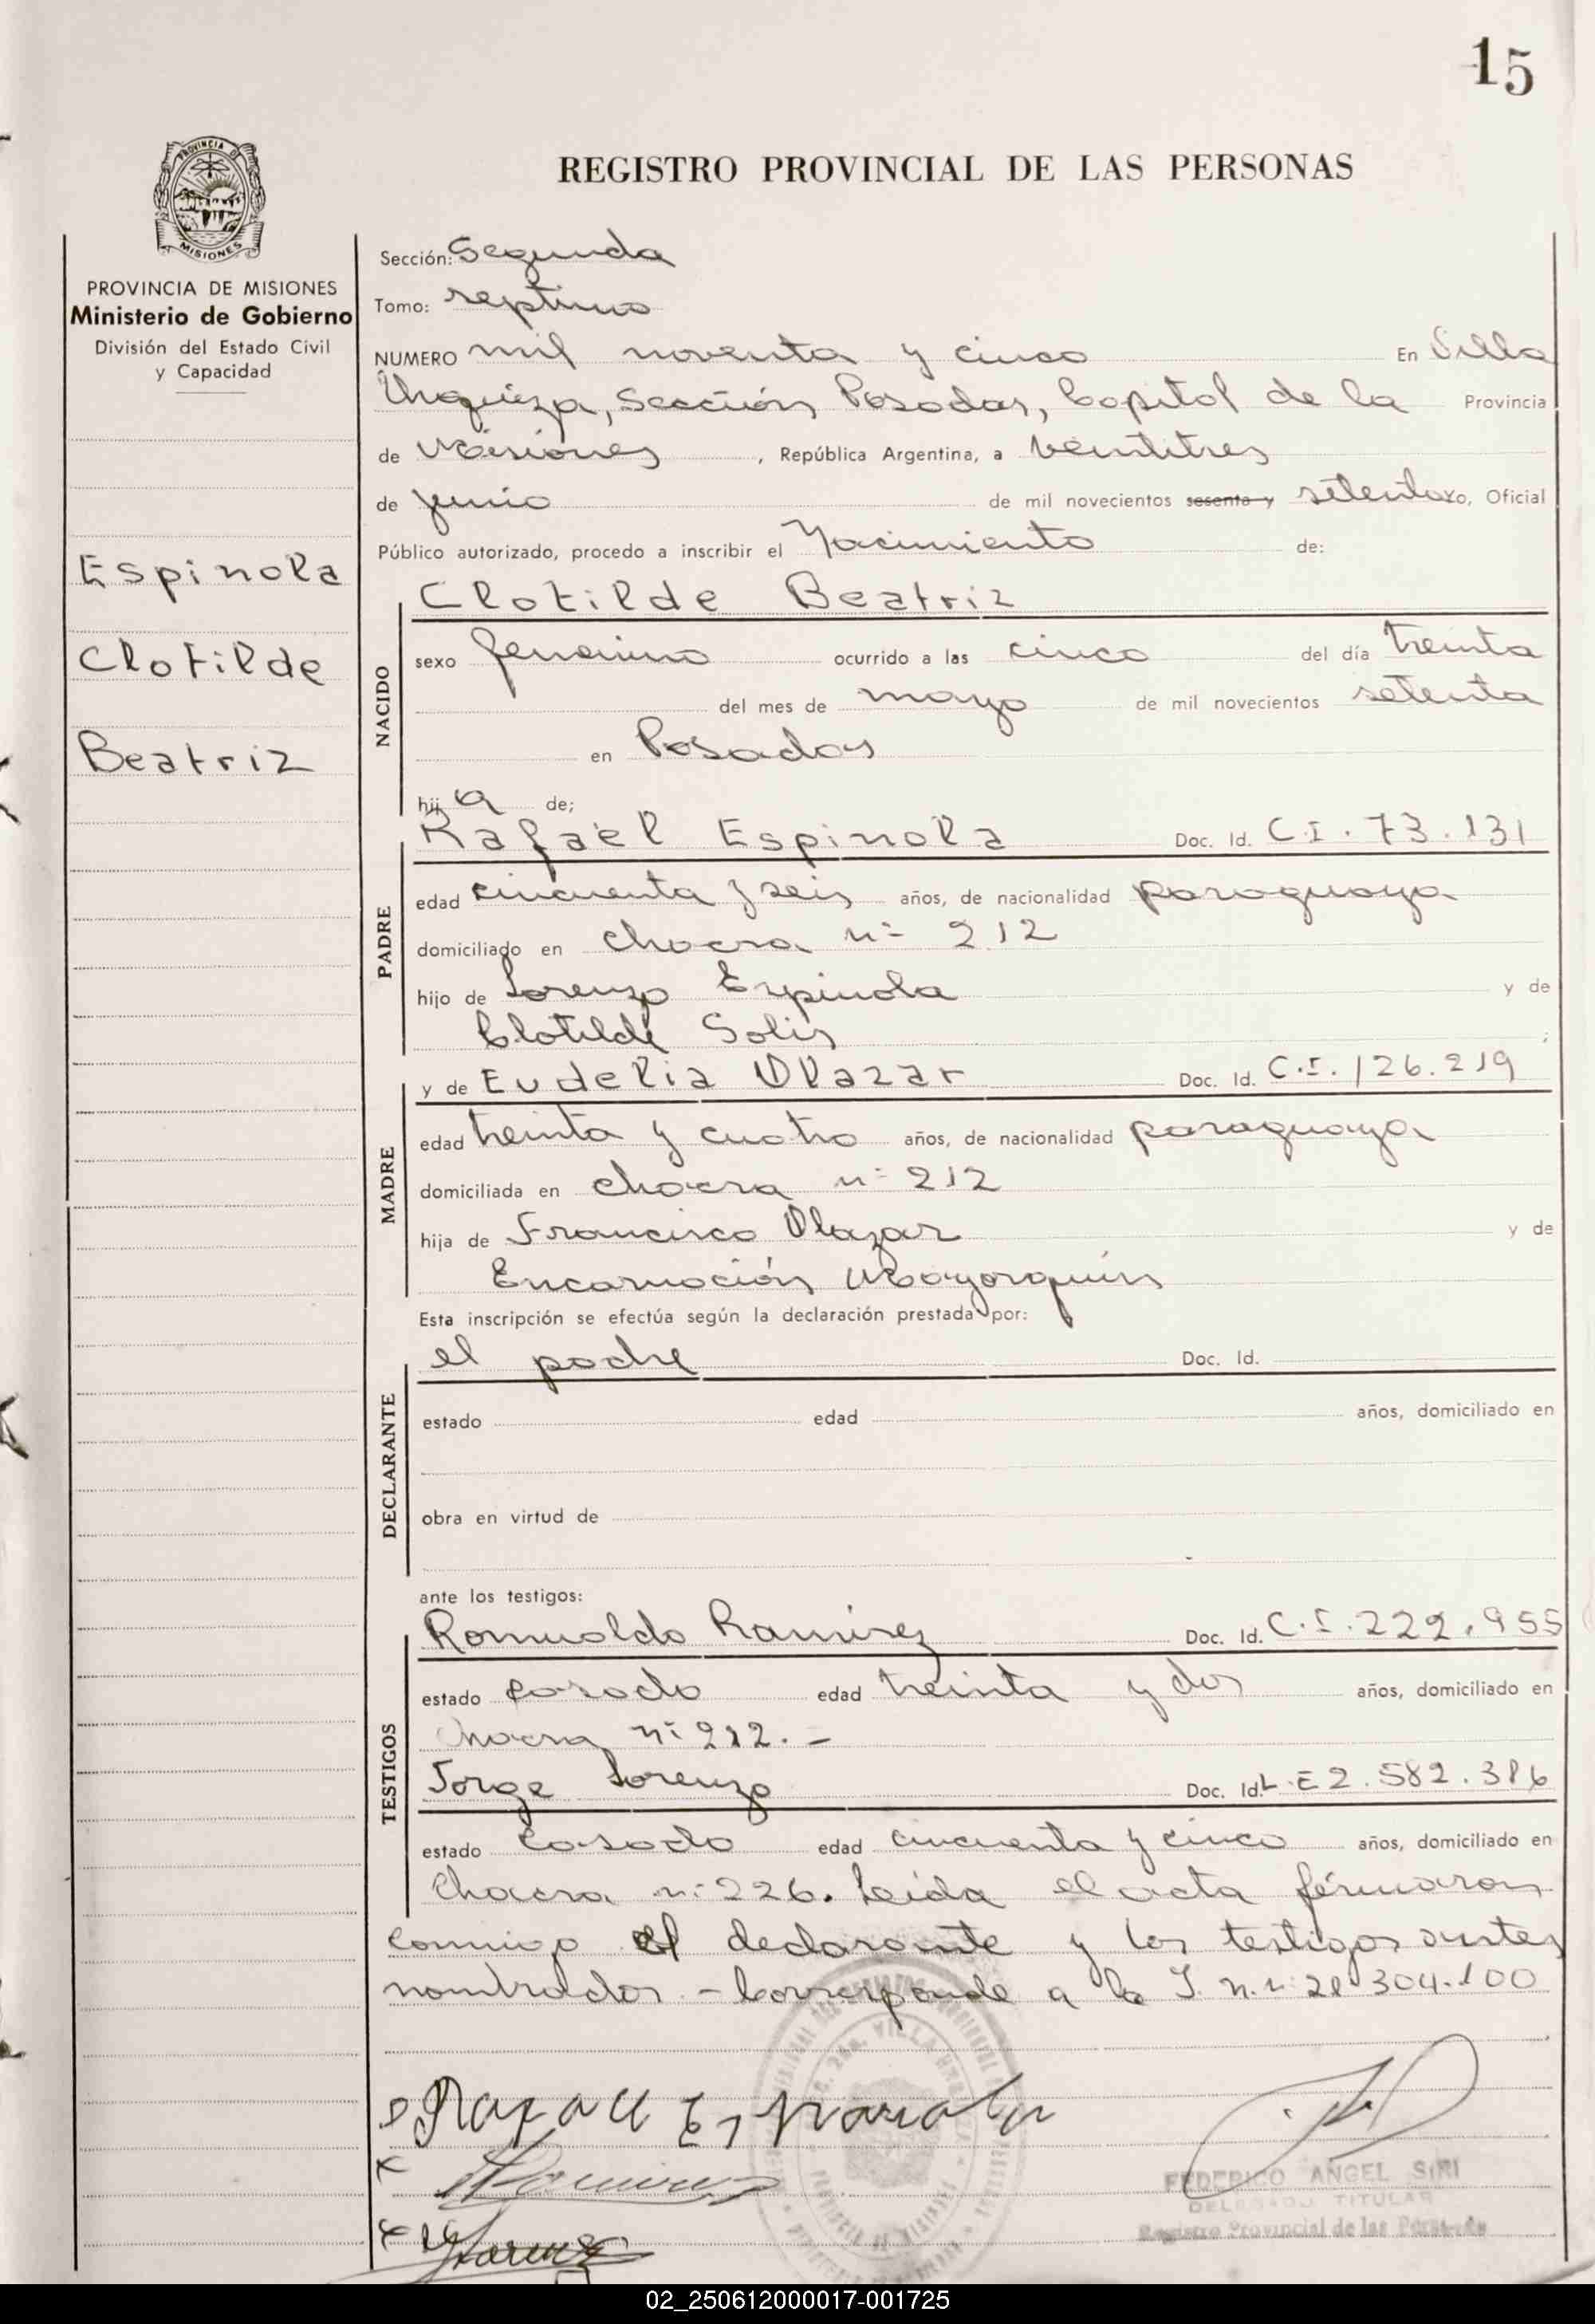 15
REGISTRO PROVINCIAL DE LAS PERSONAS
PROVINCIA DE
MISIONES
PROVINCIA DE MISIONES
Ministerio de Gobierno
División del Estado Civil
y Capacidad
Espinola
Clotilde
Beatriz
Sección: Segunda
Tomo: septimo
NUMERO mil noventa y cinco En Villa
Urquiza, Sección Posadas, Capital de la Provincia
de Misiones, República Argentina, a veintitres
de junio de mil novecientos sesenta y setenta yo, Oficial
Público autorizado, procedo a inscribir el Nacimiento de:
Clotilde Beatriz
NACIDO
sexo femenino ocurrido a las cinco del día treinta
del mes de mayo de mil novecientos setenta
en Posadas
hija de;
Rafael Espinola Doc. Id. C.I. 73.131
PADRE
edad cincuenta y seis años, de nacionalidad paraguaya
domiciliado en chacra nº 212
hijo de Lorenzo Espinola y de
Clotilde Solis ;
y de Eudelia Olazar Doc. Id. C.I. 126.219
MADRE
edad treinta y cuatro años, de nacionalidad paraguaya
domiciliada en chacra nº 212
hija de Francisco Olazar y de
Encarnación Mayorquin
Esta inscripción se efectúa según la declaración prestada por:
el padre Doc. Id.
DECLARANTE
estado edad años, domiciliado en
obra en virtud de
ante los testigos:
Romualdo Ramirez Doc. Id. C.I. 222.955
TESTIGOS
estado casado edad treinta y dos años, domiciliado en
chacra nº 212. -
Jorge Lorenzo Doc. Id. L.E 2.582.386
estado casado edad cincuenta y cinco años, domiciliado en
Chacra nº 226. Leida el acta firmaron
conmigo el declarante y los testigos antes
nombrados. - Corresponde a la I. n. nº 21.304.100
Rafael Espinola
Ramirez
JLorenzo
FEDERICO ANGEL SIRI
DELEGADO TITULAR
Registro Provincial de las Personas
02_250612000017-001725